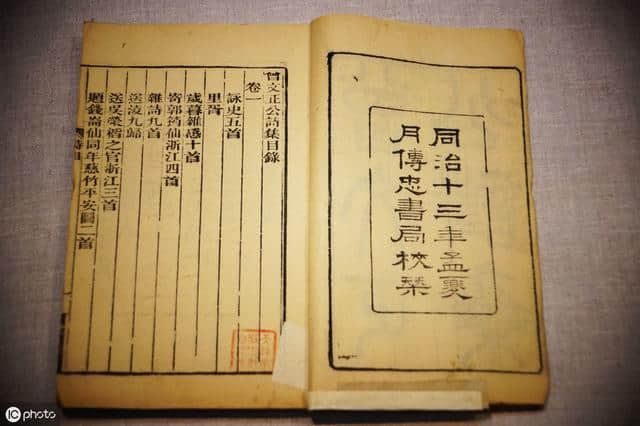 同治十三年孟夏
月傳忠書局校栞
曾文正公詩集目錄
卷一
詠史五首
里胥
歲暮雜感十首
寄郭筠仙浙江四首
雜詩九首
送淩九歸
送吳榮楷之官浙江三首
題錢崙仙同年慈竹平安圖二首
iC photo